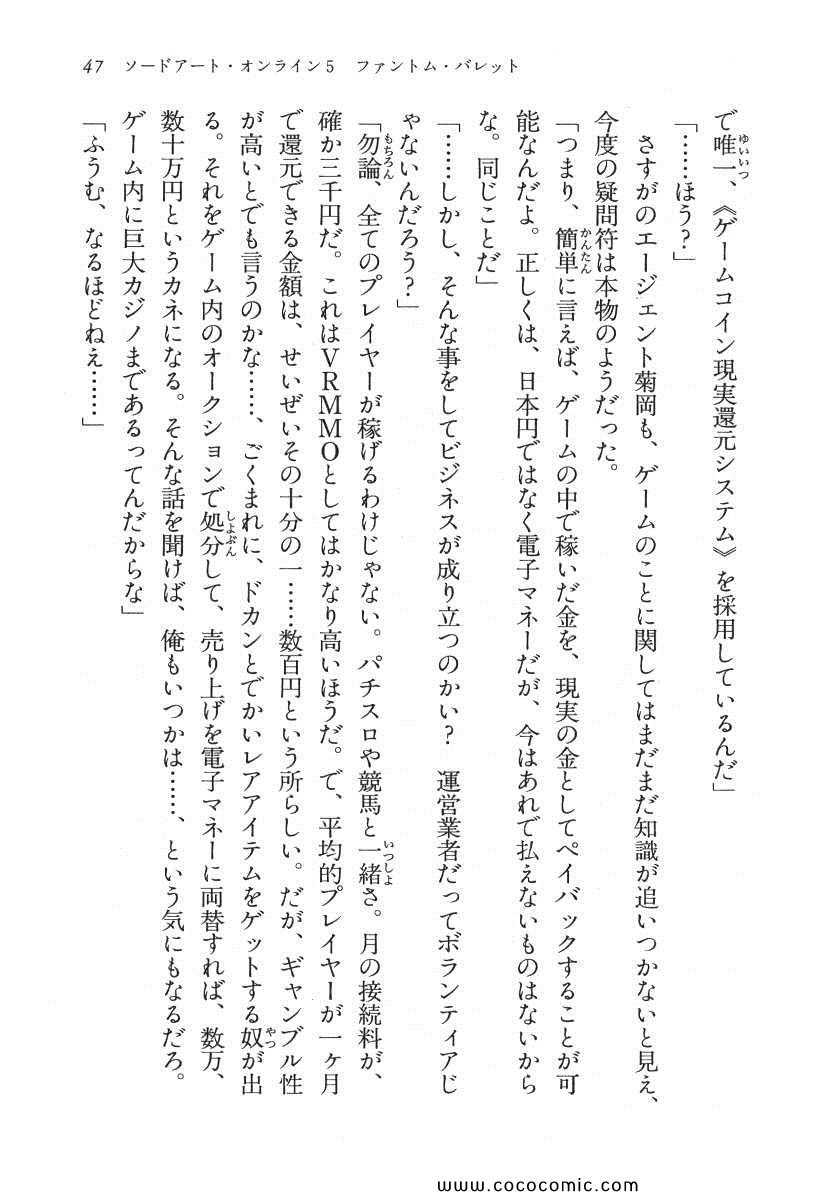 47 ソードアート・オンライン5 ファントム・バレット
で唯一、《ゲームコイン現実還元システム》を採用しているんだ」
「……ほう?」
さすがのエージェント菊岡も、ゲームのことに関してはまだまだ知識が追いつかないと見え、
今度の疑問符は本物のようだった。
「つまり、簡単に言えば、ゲームの中で稼いだ金を、現実の金としてペイバックすることが可
能なんだよ。正しくは、日本円ではなく電子マネーだが、今はあれで払えないものはないから
な。同じことだ」
「……しかし、そんな事をしてビジネスが成り立つのかい? 運営業者だってボランティアじ
ゃないんだろう?」
「勿論、全てのプレイヤーが稼げるわけじゃない。パチスロや競馬と一緒さ。月の接続料が、
確か三千円だ。これはVRMMOとしてはかなり高いほうだ。で、平均的プレイヤーが一ヶ月
で還元できる金額は、せいぜいその十分の一……数百円という所らしい。だが、ギャンブル性
が高いとでも言うのかな……、ごくまれに、ドカンとでかいレアアイテムをゲットする奴が出
る。それをゲーム内のオークションで処分して、売り上げを電子マネーに両替すれば、数万、
数十万円というカネになる。そんな話を聞けば、俺もいつかは……、という気にもなるだろ。
ゲーム内に巨大カジノまであるってんだからな」
「ふうむ、なるほどねえ……」
www.cococomic.com